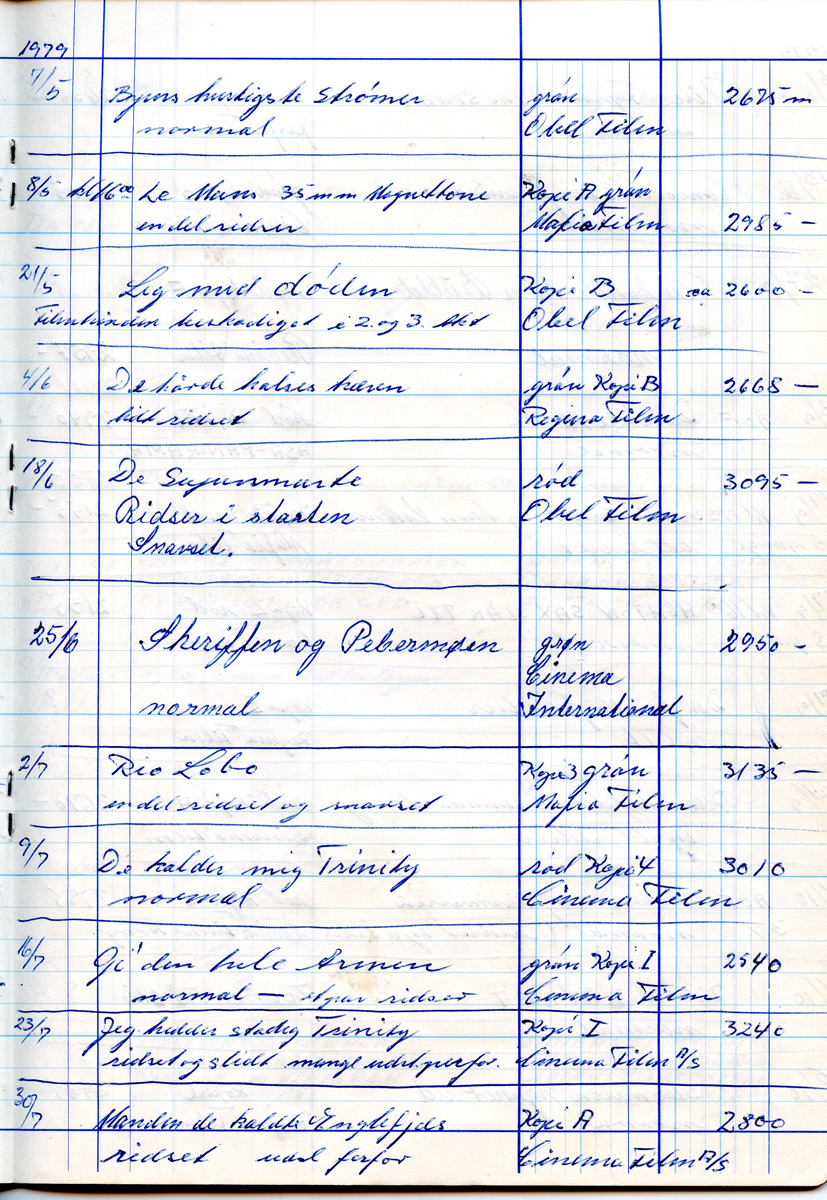 1979
7/5 Byens hurtigste Strømer grøn 2675 m
normal Obel Film
8/5 kl 16 00 Le Mans 35 mm Magnettone Kopi A grøn
en del ridser Mafia Film 2985 —
21/5 Leg med døden Kopi B ca 2600 —
Filmbinden beskadiget i 2. og 3. Akt Obel Film
4/6 De hårde halses hæren grøn Kopi B 2668 —
lidt ridset Regina Film
18/6 De rød 3095 —
Ridser i starten Obel Film
Snavset.
25/6 Sheriffen og Pebermøen grøn 2950 —
Cinema
normal International
2/7 Rio Lobo Kopi 3 grøn 3135 —
en del ridset og snavset Mafia Film
9/7 De kalder mig Trinity rød Kopi 4 3010
normal Cinema Film
16/7 Gi' den hele Armen grøn Kopi I 2540
normal — et par ridser Cinema Film
23/7 Jeg hedder stadig Trinity Kopi I 3240
ridset og slidt mange udst. perfor. Cinema Film A/S
30/7 Manden de kaldte Englefjæs Kopi A 2800
ridset Cinema Film A/S